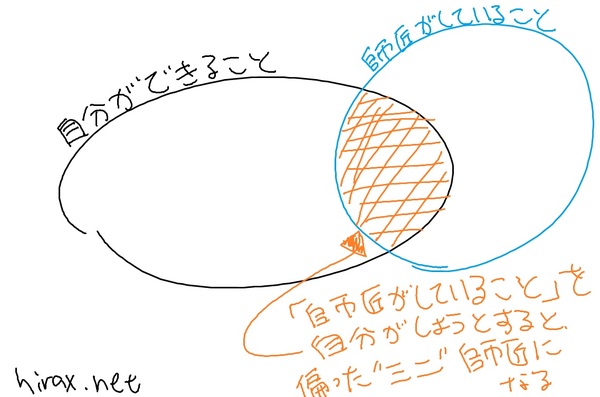 自分ができること
師匠がしていること
「師匠がしていること」を
自分がしようとすると、
偏った"ミニ"師匠に
なる
hirax.net